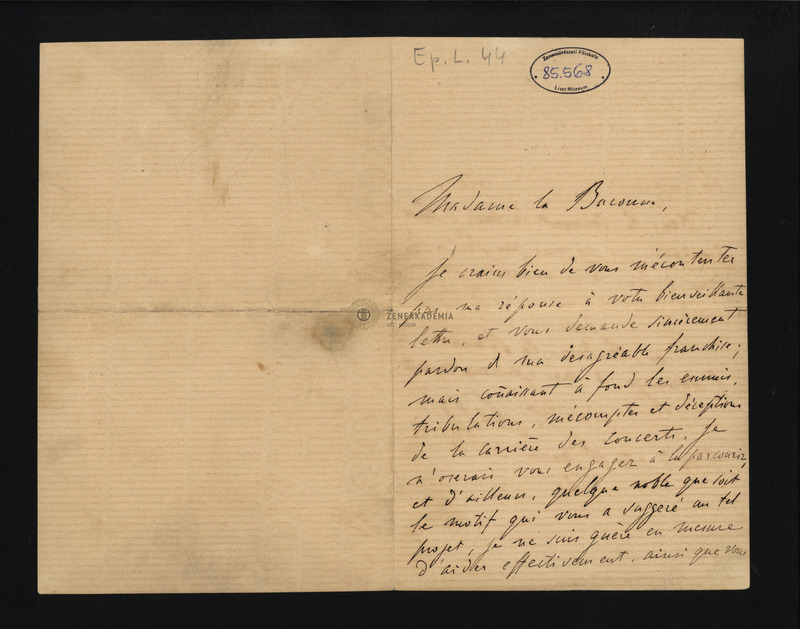 Ep. L. 44
Zeneművészeti Főiskola
85.568
Liszt Múzeum
Madame la Baronne,
Je crains bien de vous mécontenter
par ma réponse à votre bienveillante
lettre, et vous demande sincèrement
pardon de ma désagréable franchise;
mais connaissant à fond les ennuis,
tribulations, mécomptes et déceptions
de la carrière des concerts, je
n'oserais vous engager à la parcourir,
et d'ailleurs, quelque noble que soit
le motif qui vous a suggéré un tel
projet, je ne suis guère en mesure
d'aider effectivement, ainsi que vous
ZENEAKADÉMIA